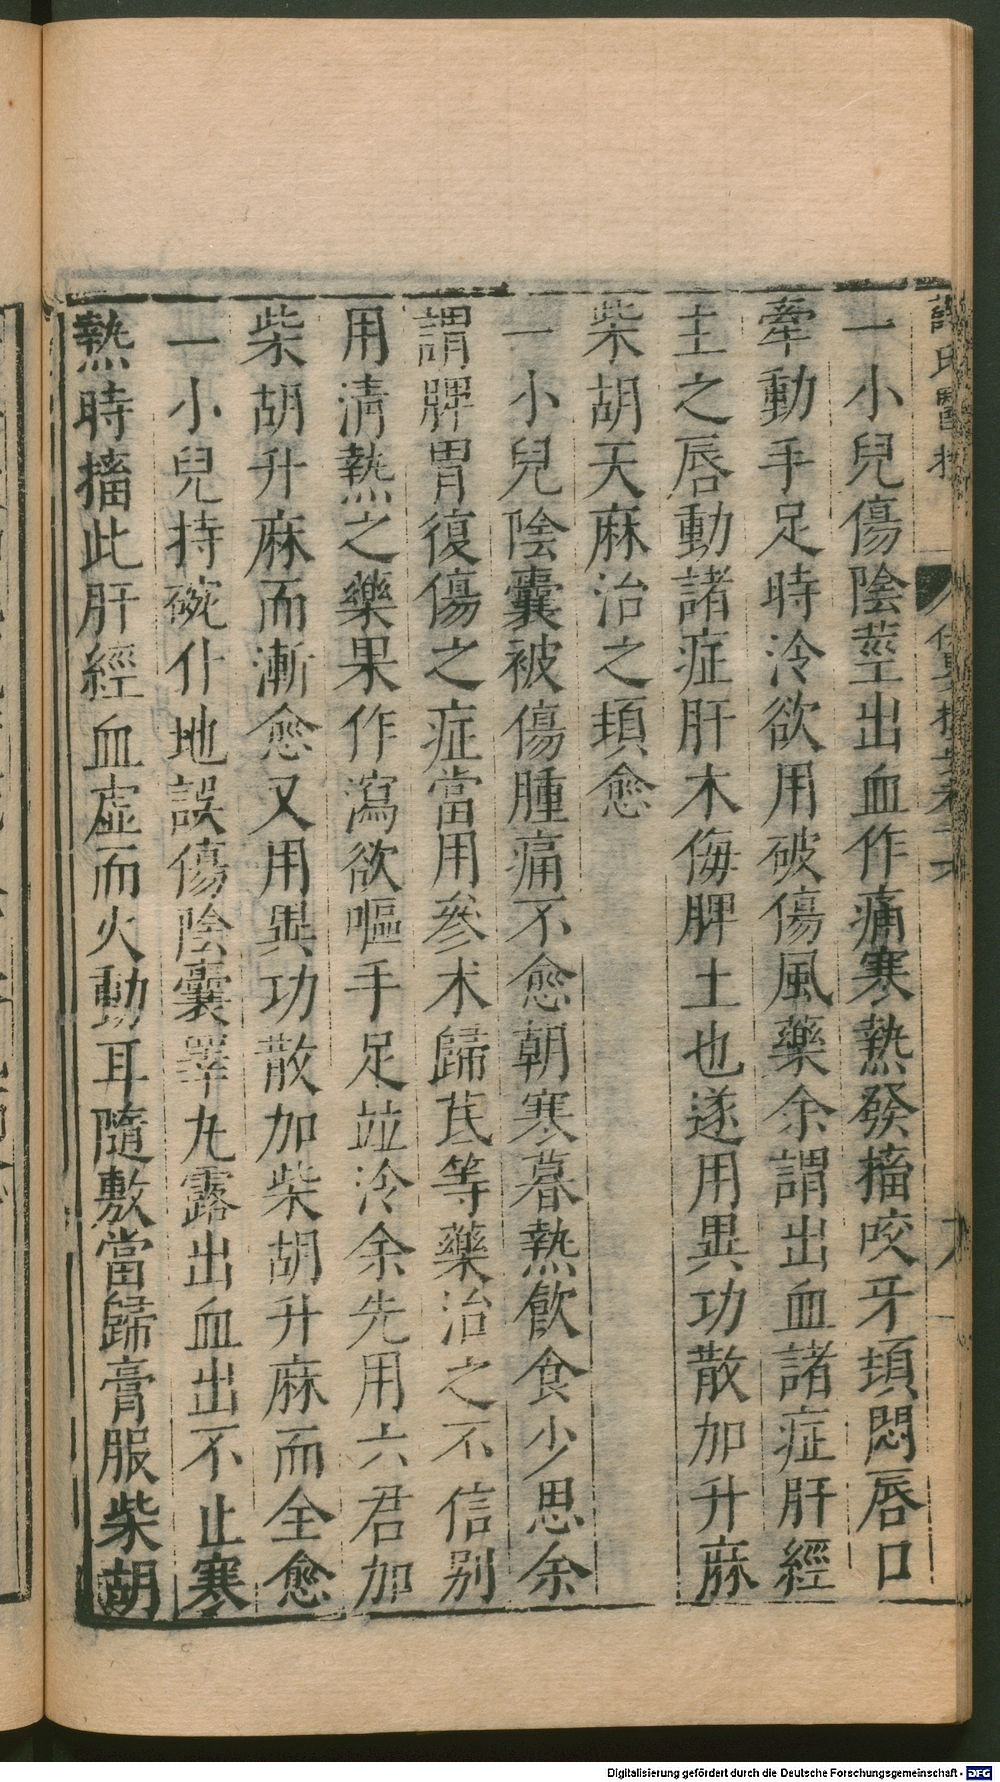 薛氏醫按
保嬰撮要卷十六
一小兒傷陰莖出血作痛寒熱發搐咬牙頓悶唇口
牽動手足時冷欲用破傷風藥余謂出血諸症肝經
主之唇動諸症肝木侮脾土也遂用異功散加升麻
柴胡天麻治之頓愈
一小兒陰囊被傷腫痛不愈朝寒暮熱飲食少思余
謂脾胃復傷之症當用參朮歸芪等藥治之不信別
用清熱之藥果作瀉欲嘔手足並冷余先用六君加
柴胡升麻而漸愈又用異功散加柴胡升麻而全愈
一小兒持碗仆地誤傷陰囊睪丸露出血出不止寒
熱時搐此肝經血虛而火動耳隨敷當歸膏服柴胡
Digitalisierung gefördert durch die Deutsche Forschungsgemeinschaft - DFG